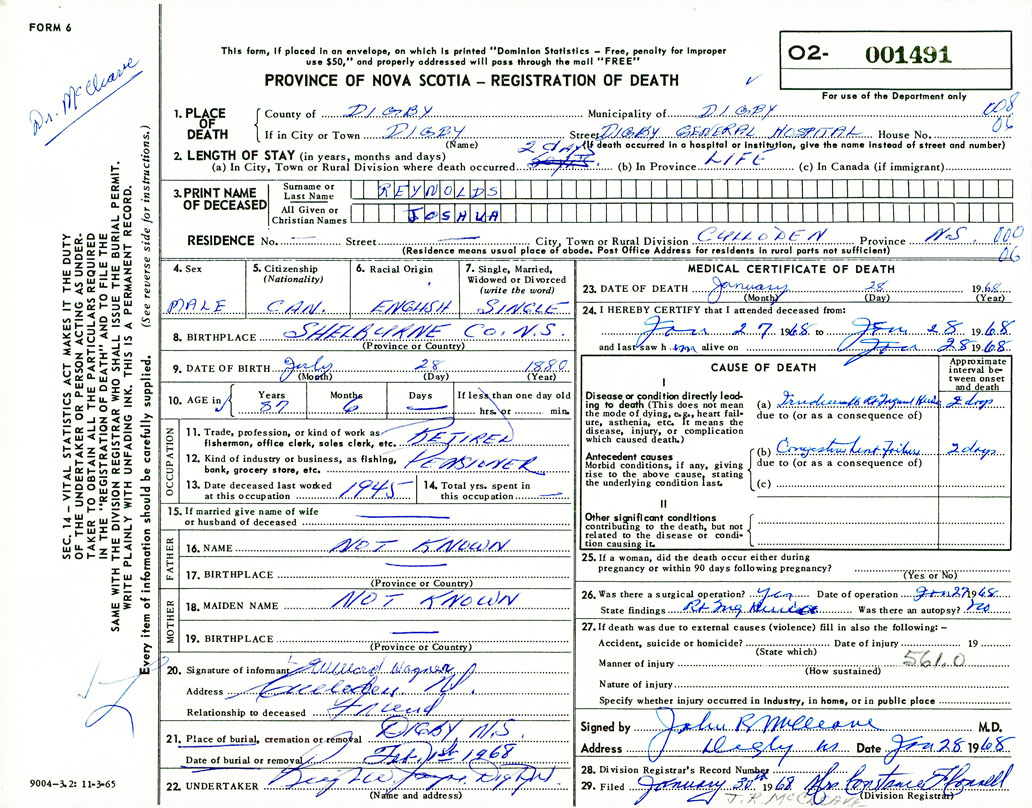 FORM 6
This form, if placed in an envelope, on which is printed "Dominion Statistics – Free, penalty for improper
use $50," and properly addressed will pass through the mail "FREE"
PROVINCE OF NOVA SCOTIA – REGISTRATION OF DEATH
O2- 001491
For use of the Department only
Dr. McCleave
SEC. 14 – VITAL STATISTICS ACT MAKES IT THE DUTY
OF THE UNDERTAKER OR PERSON ACTING AS UNDER-
TAKER TO OBTAIN ALL THE PARTICULARS REQUIRED
IN THE "REGISTRATION OF DEATH" AND TO FILE THE
SAME WITH THE DIVISION REGISTRAR WHO SHALL ISSUE THE BURIAL PERMIT.
WRITE PLAINLY WITH UNFADING INK. THIS IS A PERMANENT RECORD.
Every item of information should be carefully supplied. (See reverse side for instructions.)
1. PLACE OF DEATH
County of DIGBY Municipality of DIGBY 008
If in City or Town DIGBY Street DIGBY GENERAL HOSPITAL House No. 06
(Name) (If death occurred in a hospital or institution, give the name instead of street and number)
2. LENGTH OF STAY (in years, months and days)
(a) In City, Town or Rural Division where death occurred 2 days (b) In Province LIFE (c) In Canada (if immigrant)
3. PRINT NAME OF DECEASED
Surname or Last Name REYNOLDS
All Given or Christian Names JOSHUA
RESIDENCE No. — Street — City, Town or Rural Division CULLODEN Province N.S. 000
(Residence means usual place of abode. Post Office Address for residents in rural parts not sufficient) 06
4. Sex MALE
5. Citizenship (Nationality) CAN.
6. Racial Origin ENGLISH
7. Single, Married, Widowed or Divorced (write the word) SINGLE
8. BIRTHPLACE SHELBURNE CO. N.S.
(Province or Country)
9. DATE OF BIRTH July 28 1880
(Month) (Day) (Year)
10. AGE in Years 87 Months 6 Days — If less than one day old hrs. or min.
OCCUPATION
11. Trade, profession, or kind of work as
fisherman, office clerk, sales clerk, etc. RETIRED
12. Kind of industry or business, as fishing,
bank, grocery store, etc. PENSIONER
13. Date deceased last worked
at this occupation 1945
14. Total yrs. spent in
this occupation —
15. If married give name of wife
or husband of deceased —
FATHER
16. NAME NOT KNOWN
17. BIRTHPLACE —
(Province or Country)
MOTHER
18. MAIDEN NAME NOT KNOWN
19. BIRTHPLACE —
(Province or Country)
20. Signature of informant Willard Wagner
Address Culloden NS
Relationship to deceased Friend
21. Place of burial, cremation or removal DIGBY, N.S.
Date of burial or removal Feb. 1st 1968
22. UNDERTAKER Digby
(Name and address)
MEDICAL CERTIFICATE OF DEATH
23. DATE OF DEATH January 28 1968
(Month) (Day) (Year)
24. I HEREBY CERTIFY that I attended deceased from:
Jan 27 1968 to Jan 28 1968
and last saw him alive on Jan 28 1968
CAUSE OF DEATH
Approximate interval between onset and death
I
Disease or condition directly lead-
ing to death (This does not mean
the mode of dying, e.g., heart fail-
ure, asthenia, etc. It means the
disease, injury, or complication
which caused death.)
(a) Rt 2 days
due to (or as a consequence of)
Antecedent causes
Morbid conditions, if any, giving
rise to the above cause, stating
the underlying condition last.
(b) Congestive heart failure 2 days
due to (or as a consequence of)
(c)
II
Other significant conditions
contributing to the death, but not
related to the disease or condi-
tion causing it.
25. If a woman, did the death occur either during
pregnancy or within 90 days following pregnancy?
(Yes or No)
26. Was there a surgical operation? Yes Date of operation Jan 27 1968
State findings Rt Ing Hernia Was there an autopsy? No
27. If death was due to external causes (violence) fill in also the following: –
Accident, suicide or homicide? Date of injury 19
(State which)
Manner of injury 561.0
(How sustained)
Nature of injury
Specify whether injury occurred in Industry, in home, or in public place
Signed by John R McCleave M.D.
Address Digby NS Date Jan 28 1968
28. Division Registrar's Record Number
29. Filed January 30th 1968 Mrs Constance
(Division Registrar)
J. R. McCLEAVE
9004-3.2: 11-3-65